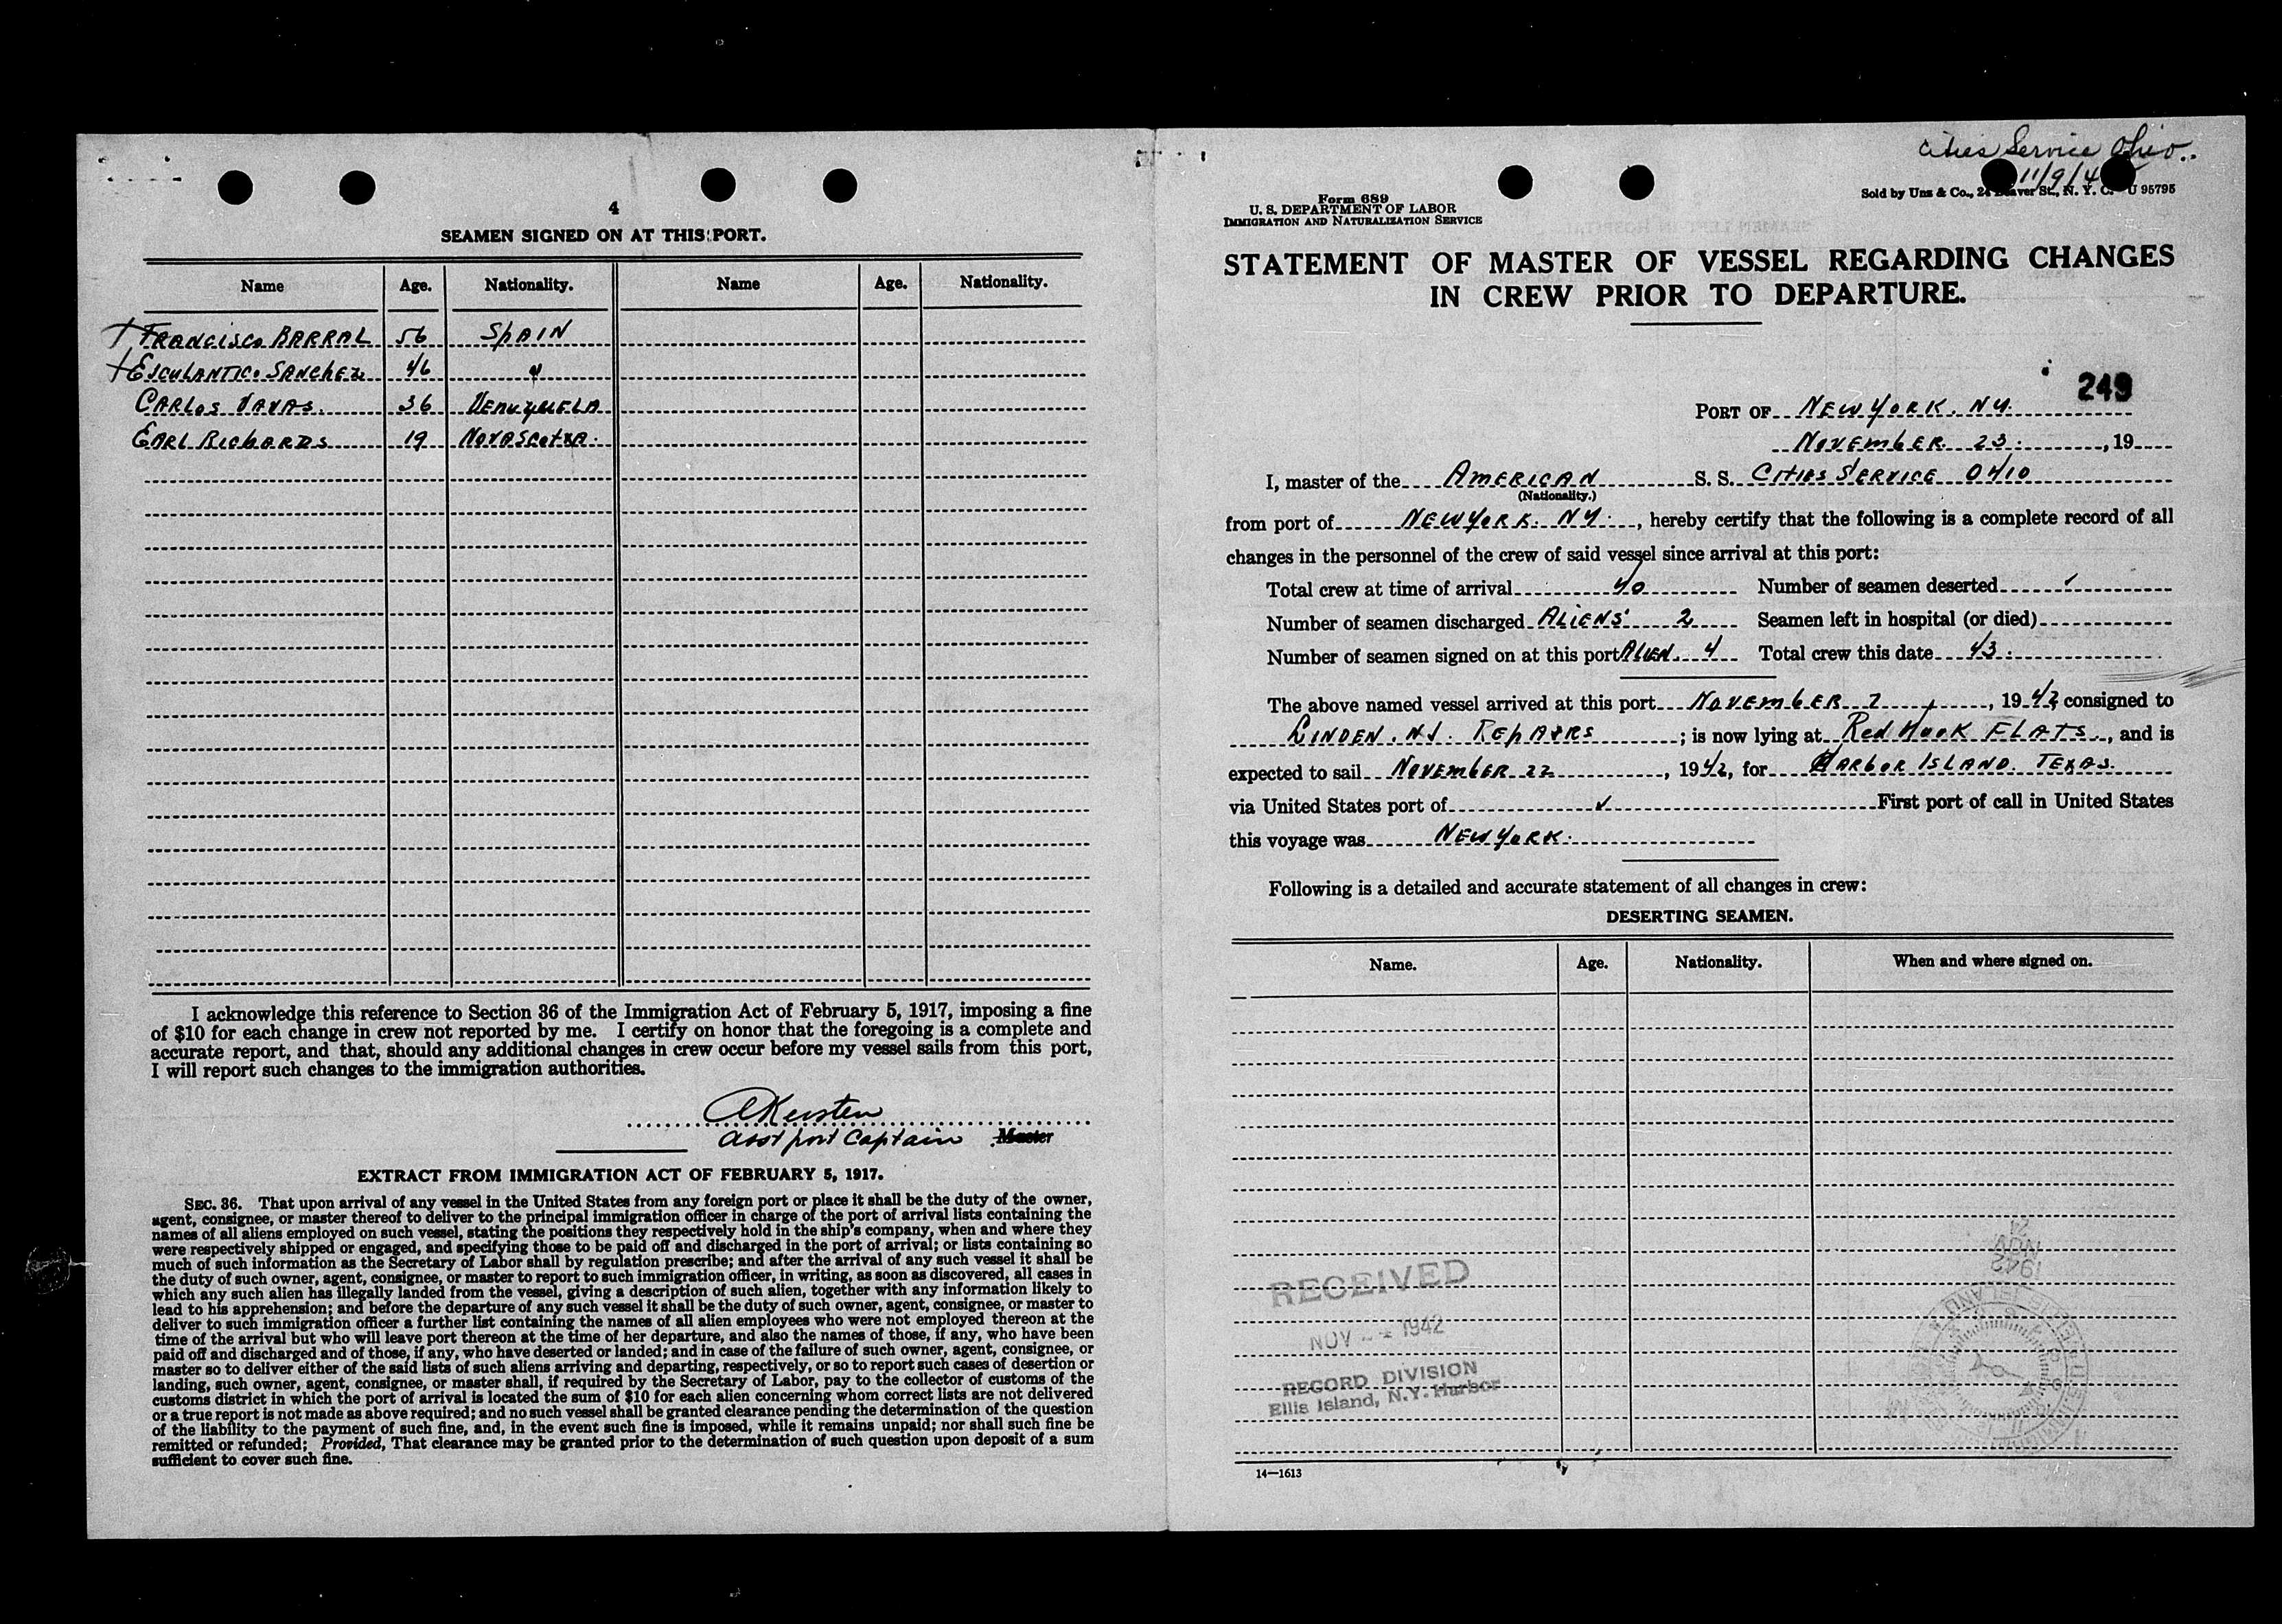 4
SEAMEN SIGNED ON AT THIS PORT.
Name Age. Nationality. Name Age. Nationality.
FRANCISCO BARRAL 56 SPAIN
SANCHEZ 46 "
CARLOS 36
EARL RICHARDS 19 NOVASCOTIA.
I acknowledge this reference to Section 36 of the Immigration Act of February 5, 1917, imposing a fine
of $10 for each change in crew not reported by me. I certify on honor that the foregoing is a complete and
accurate report, and that, should any additional changes in crew occur before my vessel sails from this port,
I will report such changes to the immigration authorities.
AKersten
Asst port Captain Master
EXTRACT FROM IMMIGRATION ACT OF FEBRUARY 5, 1917.
SEC. 36. That upon arrival of any vessel in the United States from any foreign port or place it shall be the duty of the owner,
agent, consignee, or master thereof to deliver to the principal immigration officer in charge of the port of arrival lists containing the
names of all aliens employed on such vessel, stating the positions they respectively hold in the ship's company, when and where they
were respectively shipped or engaged, and specifying those to be paid off and discharged in the port of arrival; or lists containing so
much of such information as the Secretary of Labor shall by regulation prescribe; and after the arrival of any such vessel it shall be
the duty of such owner, agent, consignee, or master to report to such immigration officer, in writing, as soon as discovered, all cases in
which any such alien has illegally landed from the vessel, giving a description of such alien, together with any information likely to
lead to his apprehension; and before the departure of any such vessel it shall be the duty of such owner, agent, consignee, or master to
deliver to such immigration officer a further list containing the names of all alien employees who were not employed thereon at the
time of the arrival but who will leave port thereon at the time of her departure, and also the names of those, if any, who have been
paid off and discharged and of those, if any, who have deserted or landed; and in case of the failure of such owner, agent, consignee, or
master so to deliver either of the said lists of such aliens arriving and departing, respectively, or so to report such cases of desertion or
landing, such owner, agent, consignee, or master shall, if required by the Secretary of Labor, pay to the collector of customs of the
customs district in which the port of arrival is located the sum of $10 for each alien concerning whom correct lists are not delivered
or a true report is not made as above required; and no such vessel shall be granted clearance pending the determination of the question
of the liability to the payment of such fine, and, in the event such fine is imposed, while it remains unpaid; nor shall such fine be
remitted or refunded; Provided, That clearance may be granted prior to the determination of such question upon deposit of a sum
sufficient to cover such fine.
Cities Service Ohio.
11/9/4
Sold by Unz & Co., 24 Beaver St., N. Y. C. U 95795
Form 689
U. S. DEPARTMENT OF LABOR
IMMIGRATION AND NATURALIZATION SERVICE
STATEMENT OF MASTER OF VESSEL REGARDING CHANGES
IN CREW PRIOR TO DEPARTURE.
249
PORT OF NEW YORK. NY.
NOVEMBER 23. , 19
I, master of the AMERICAN S. S. CITIES SERVICE OHIO
(Nationality.)
from port of NEW YORK. NY. , hereby certify that the following is a complete record of all
changes in the personnel of the crew of said vessel since arrival at this port:
Total crew at time of arrival 40 Number of seamen deserted
Number of seamen discharged ALIENS 2 Seamen left in hospital (or died)
Number of seamen signed on at this port ALIEN. 4 Total crew this date 43.
The above named vessel arrived at this port NOVEMBER , 1942 consigned to
LINDEN. NJ. REPAIRS ; is now lying at Red Hook FLATS. , and is
expected to sail NOVEMBER 22 , 1942, for HARBOR ISLAND. TEXAS.
via United States port of First port of call in United States
this voyage was NEW YORK.
Following is a detailed and accurate statement of all changes in crew:
DESERTING SEAMEN.
Name. Age. Nationality. When and where signed on.
RECEIVED
NOV 1942
RECORD DIVISION
Ellis Island, N.Y. Harbor
1942
NOV
24
14—1613